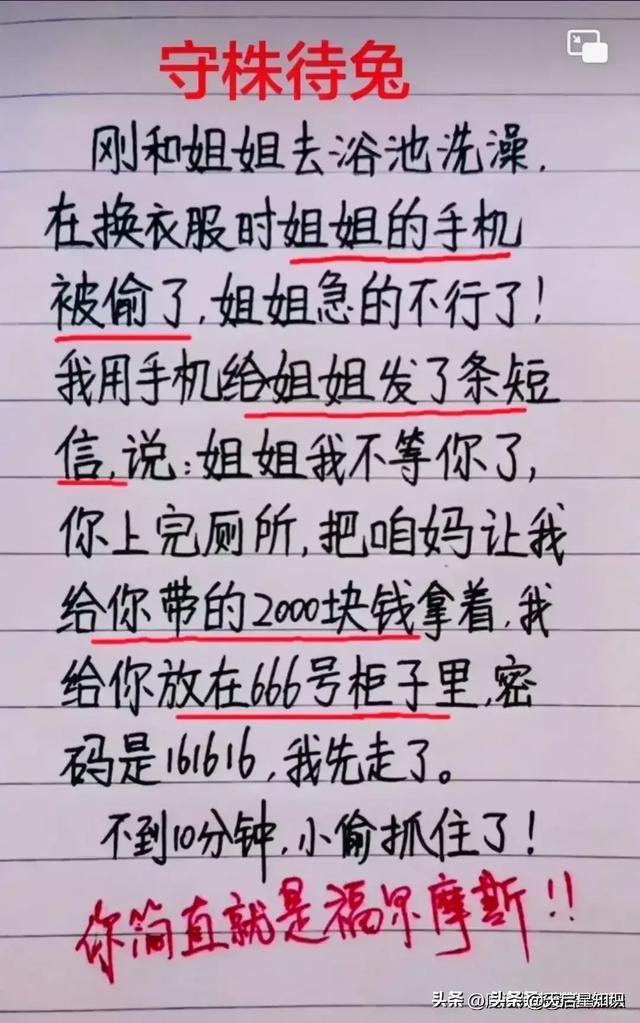 守株待兔
刚和姐姐去浴池洗澡.
在换衣服时姐姐的手机
被偷了,姐姐急的不行了!
我用手机给姐姐发了条短
信,说:姐姐我不等你了,
你上完厕所,把咱妈让我
给你带的2000块钱拿着,我
给你放在666号柜子里,密
码是161616,我先走了。
不到10分钟,小偷抓住了!
你简直就是福尔摩斯!!
头条 @天启星知识